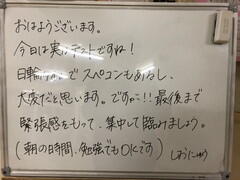 おはようございます。
今日は実力テストですね!
日輪 でスペコンもあるし、
大変だと思います。ですが!!最後まで
緊張感をもって、集中して臨みましょう。
(朝の時間、勉強でもOKです)